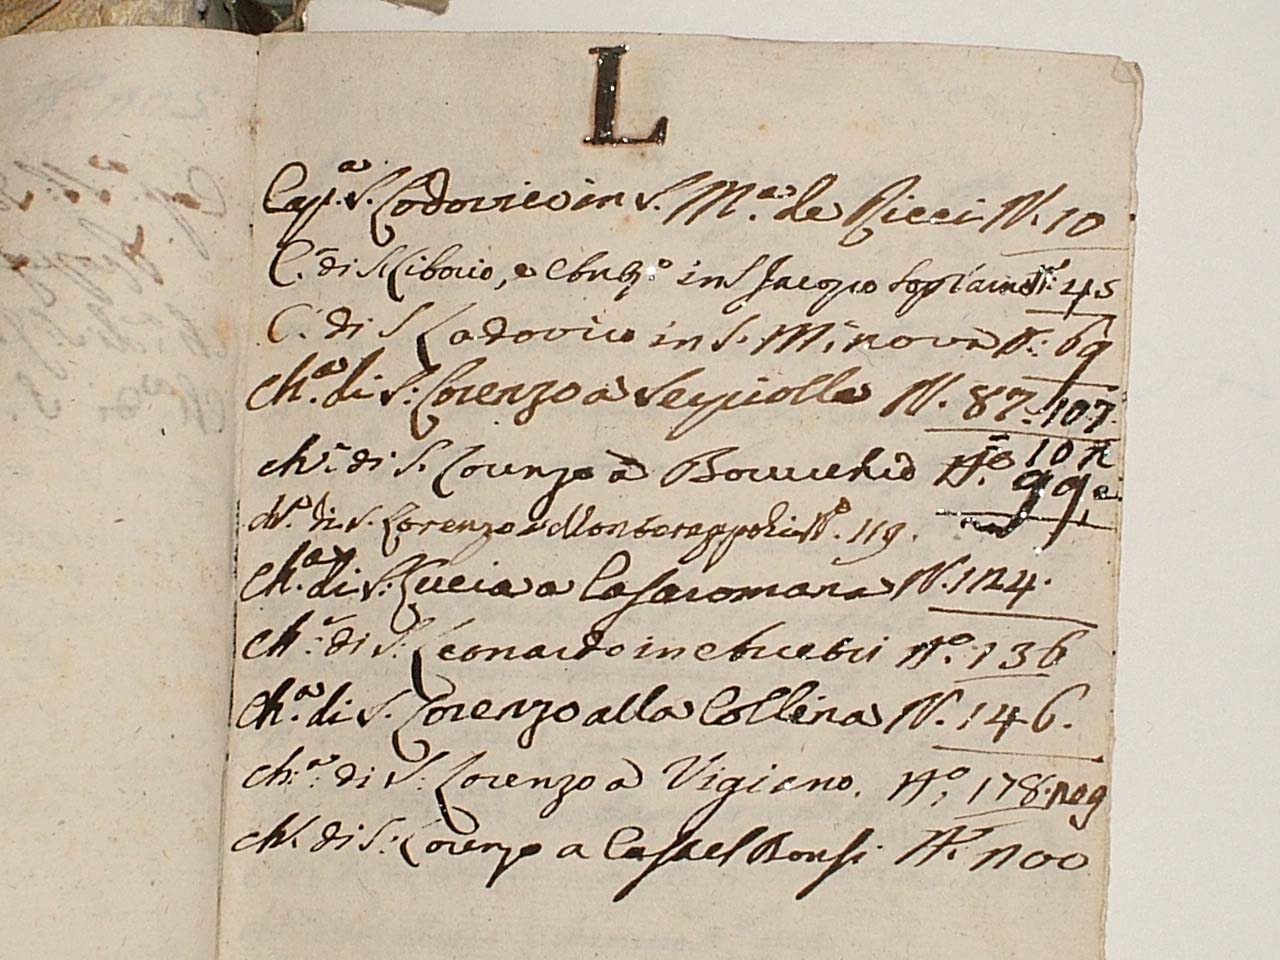 L
Cap.a S. Lodovico in S. M.a de Ricci N. 10
C.a di S Liborio, e in S Jacopo Sopr'arno N.o 45
C. di S Lodovico in S. M.a nova N. 69
Ch.a di S. Lorenzo a Serpiolla N. 87. 107
Ch.a di S. Lorenzo a N.o 99
Ch.a di S. Lorenzo a Monterappoli N.o 119.
Ch.a di S. Lucia a Casaromana N. 124.
Ch.a di S. Leonardo in N.o 136
Ch.a di S. Lorenzo alla Collina N. 146.
Ch.a di S. Lorenzo a Vigiano. N.o 178. 209
Ch. di S. Lorenzo a Castel Bonsi N. 200